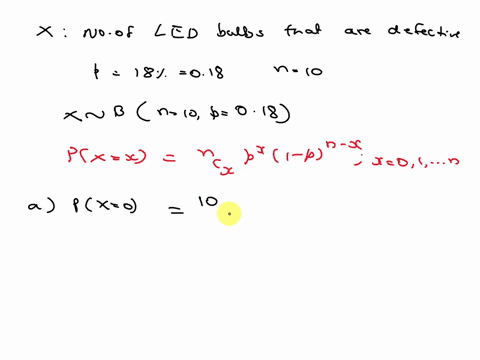 X : No. of LED bulbs that are defective
p = 18% = 0.18 n = 10
X ~ B ( n=10, p= 0.18 )
P(X=x) = n c x p^x (1-p)^{n-x} ; x=0, 1, ... n
a) P(X=0) = 10